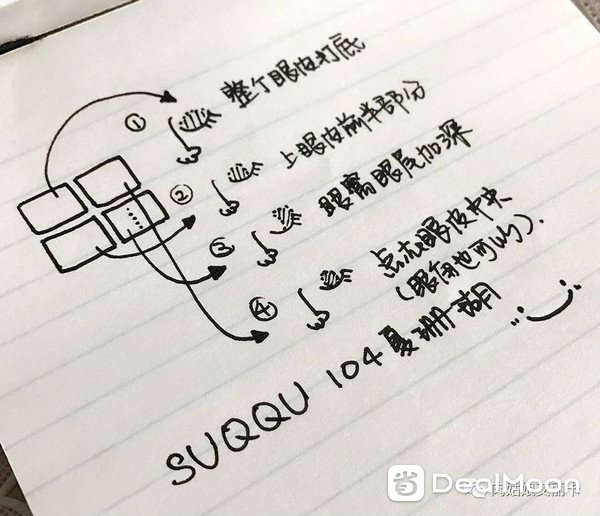 ① 整个眼皮打底
② 上眼皮前半部分
③ 眼窝眼尾加深
④ 点在眼皮中央
(眼角也可以).
SUQQU 104 夏珊瑚
省 DealMoon